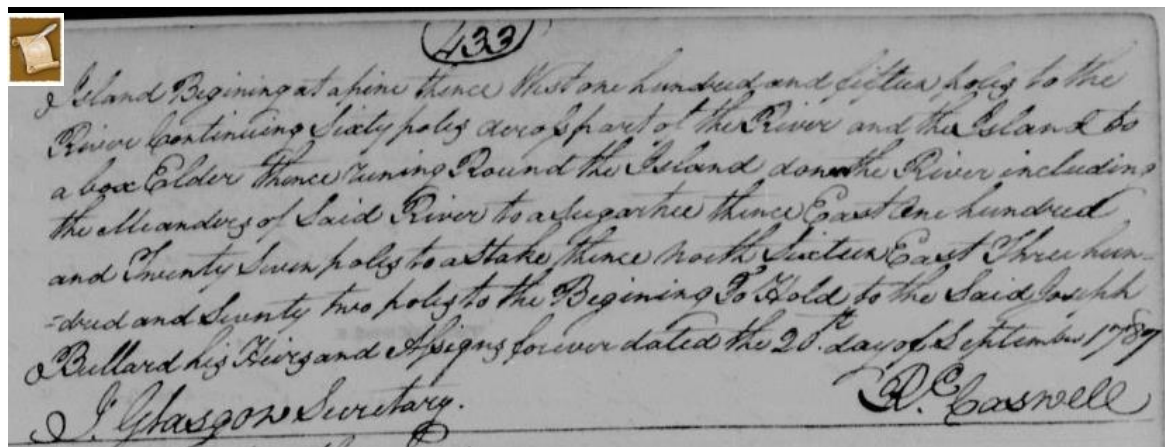 433
Island Begining at a pine thence West one hundred and fifteen poles to the
River Continuing Sixty poles across part of the River and the Island to
a box Elder thence runing Round the Island down the River including
the Meanders of Said River to a Sugartree thence East One hundred
and Twenty Seven poles to a Stake thence North Sixteen East Three hun-
=dred and Seventy two poles to the Begining To Hold to the Said Joseph
Bullard his Heirs and Assigns forever dated the 20th. day of September 1787
J. Glasgow Secretary. Rd. Caswell